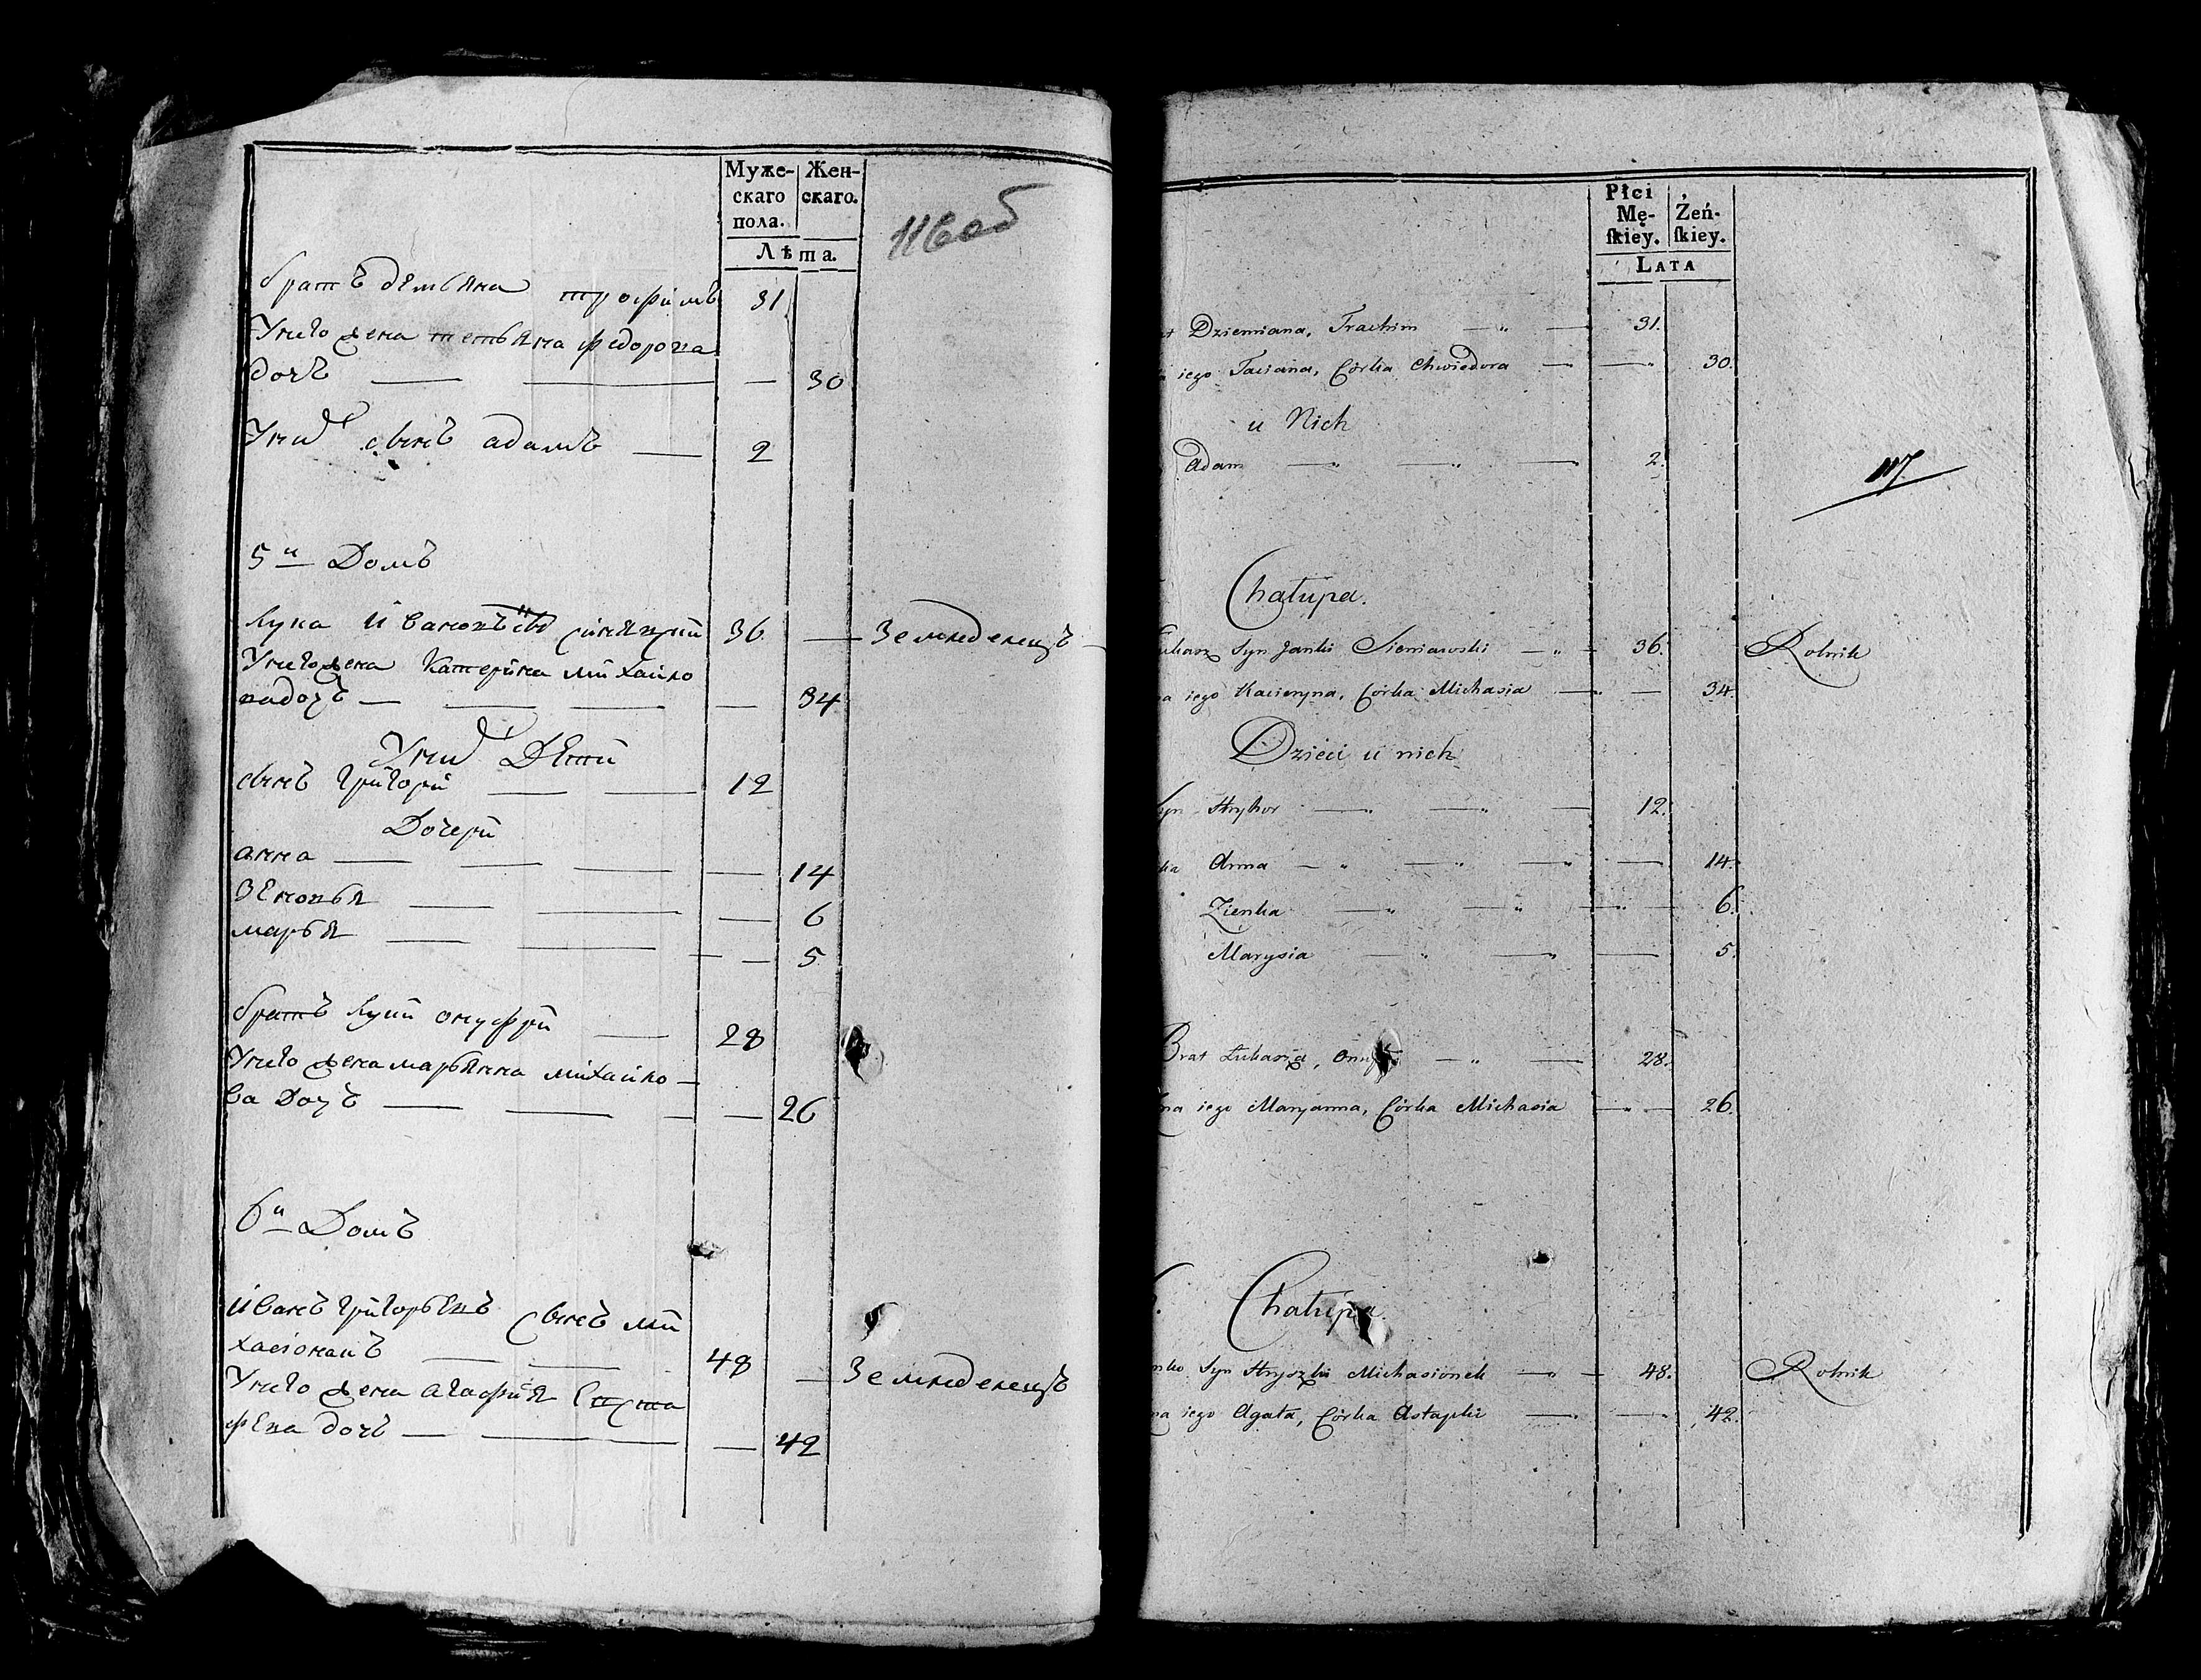 Муже-
скаго
пола.
Жен-
скаго.
Лѣта.
116 об
братъ демьяна трофимъ 31
Унего жена тетьяна федорова
дочъ 30
Уних сынъ адамъ 2
5й Домъ
Лука Ивановъ синявский 36 Земледелецъ
Унего жена Катерина михайло
вадочъ 34
Уних Дети
сынъ григорий 12
Дочери
анна 14
Зеновья 6
марья 5
братъ Луки онуфри 28
Унего жена марьянна михайло
ва Дочъ 26
6й Домъ
Иванъ григорьевъ сынъ ми
хасіонакъ 48 Земледелецъ
Унего жена агафия Евста
фева дочъ 42
Płci
Mę-
ſkiey.
Żeń-
ſkiey.
LATA
117
Dziemiana, Trachim 31.
iego Taciana, Córka Chwiedora 30.
u Nich
Adam 2.
Chałupa.
Łukasz Syn Janki Sieniawski 36. Rolnik
iego Kacieryna, Córka Michasia 34.
Dzieci u nich
Syn Hryhor 12.
Anna 14.
Zienka 6.
Marysia 5.
Brat Łukasza, 28.
iego Maryanna, Córka Michasia 26.
Chałupa.
Syn Hryszki Michasionek 48. Rolnik
iego Agata, Córka Astapki 42.